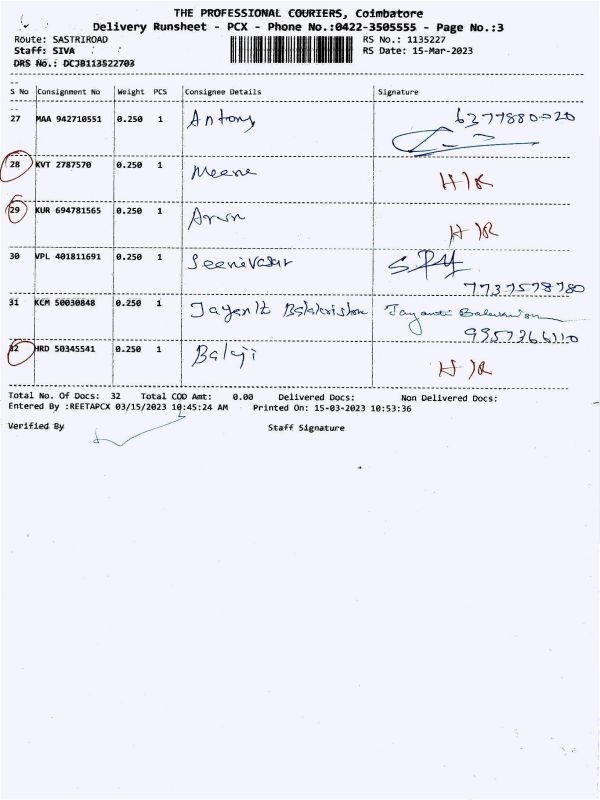 THE PROFESSIONAL COURIERS, Coimbatore
Delivery Runsheet - PCX - Phone No.:0422-3505555 - Page No.:3
Route: SASTRIROAD RS No.: 1135227
Staff: SIVA RS Date: 15-Mar-2023
DRS No.: DCJB113522703
S No Consignment No Weight PCS Consignee Details Signature
27 MAA 942710551 0.250 1 Antony 6377880020
28 KVT 2787570 0.250 1 Meena H/R
29 KUR 694781565 0.250 1 Arun H/R
30 VPL 401811691 0.250 1 Seenivasan
7737578780
31 KCM 50030848 0.250 1 Jayanti Balakrishnan Jayanti Balakrishnan
9357366110
32 HRD 50345541 0.250 1 Balaji H/R
Total No. Of Docs: 32 Total COD Amt: 0.00 Delivered Docs: Non Delivered Docs:
Entered By :REETAPCX 03/15/2023 10:45:24 AM Printed On: 15-03-2023 10:53:36
Verified By Staff Signature